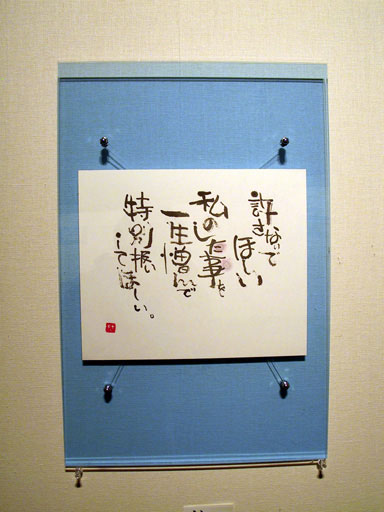 許さないで
ほしい
私のした事を
一生憎んで
特別扱い
してほしい。